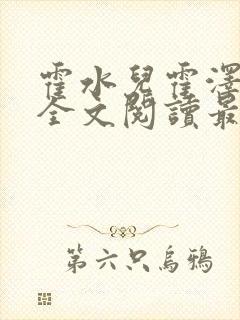 霍水兒霍澤
全文閱讀最
第六只烏鴉